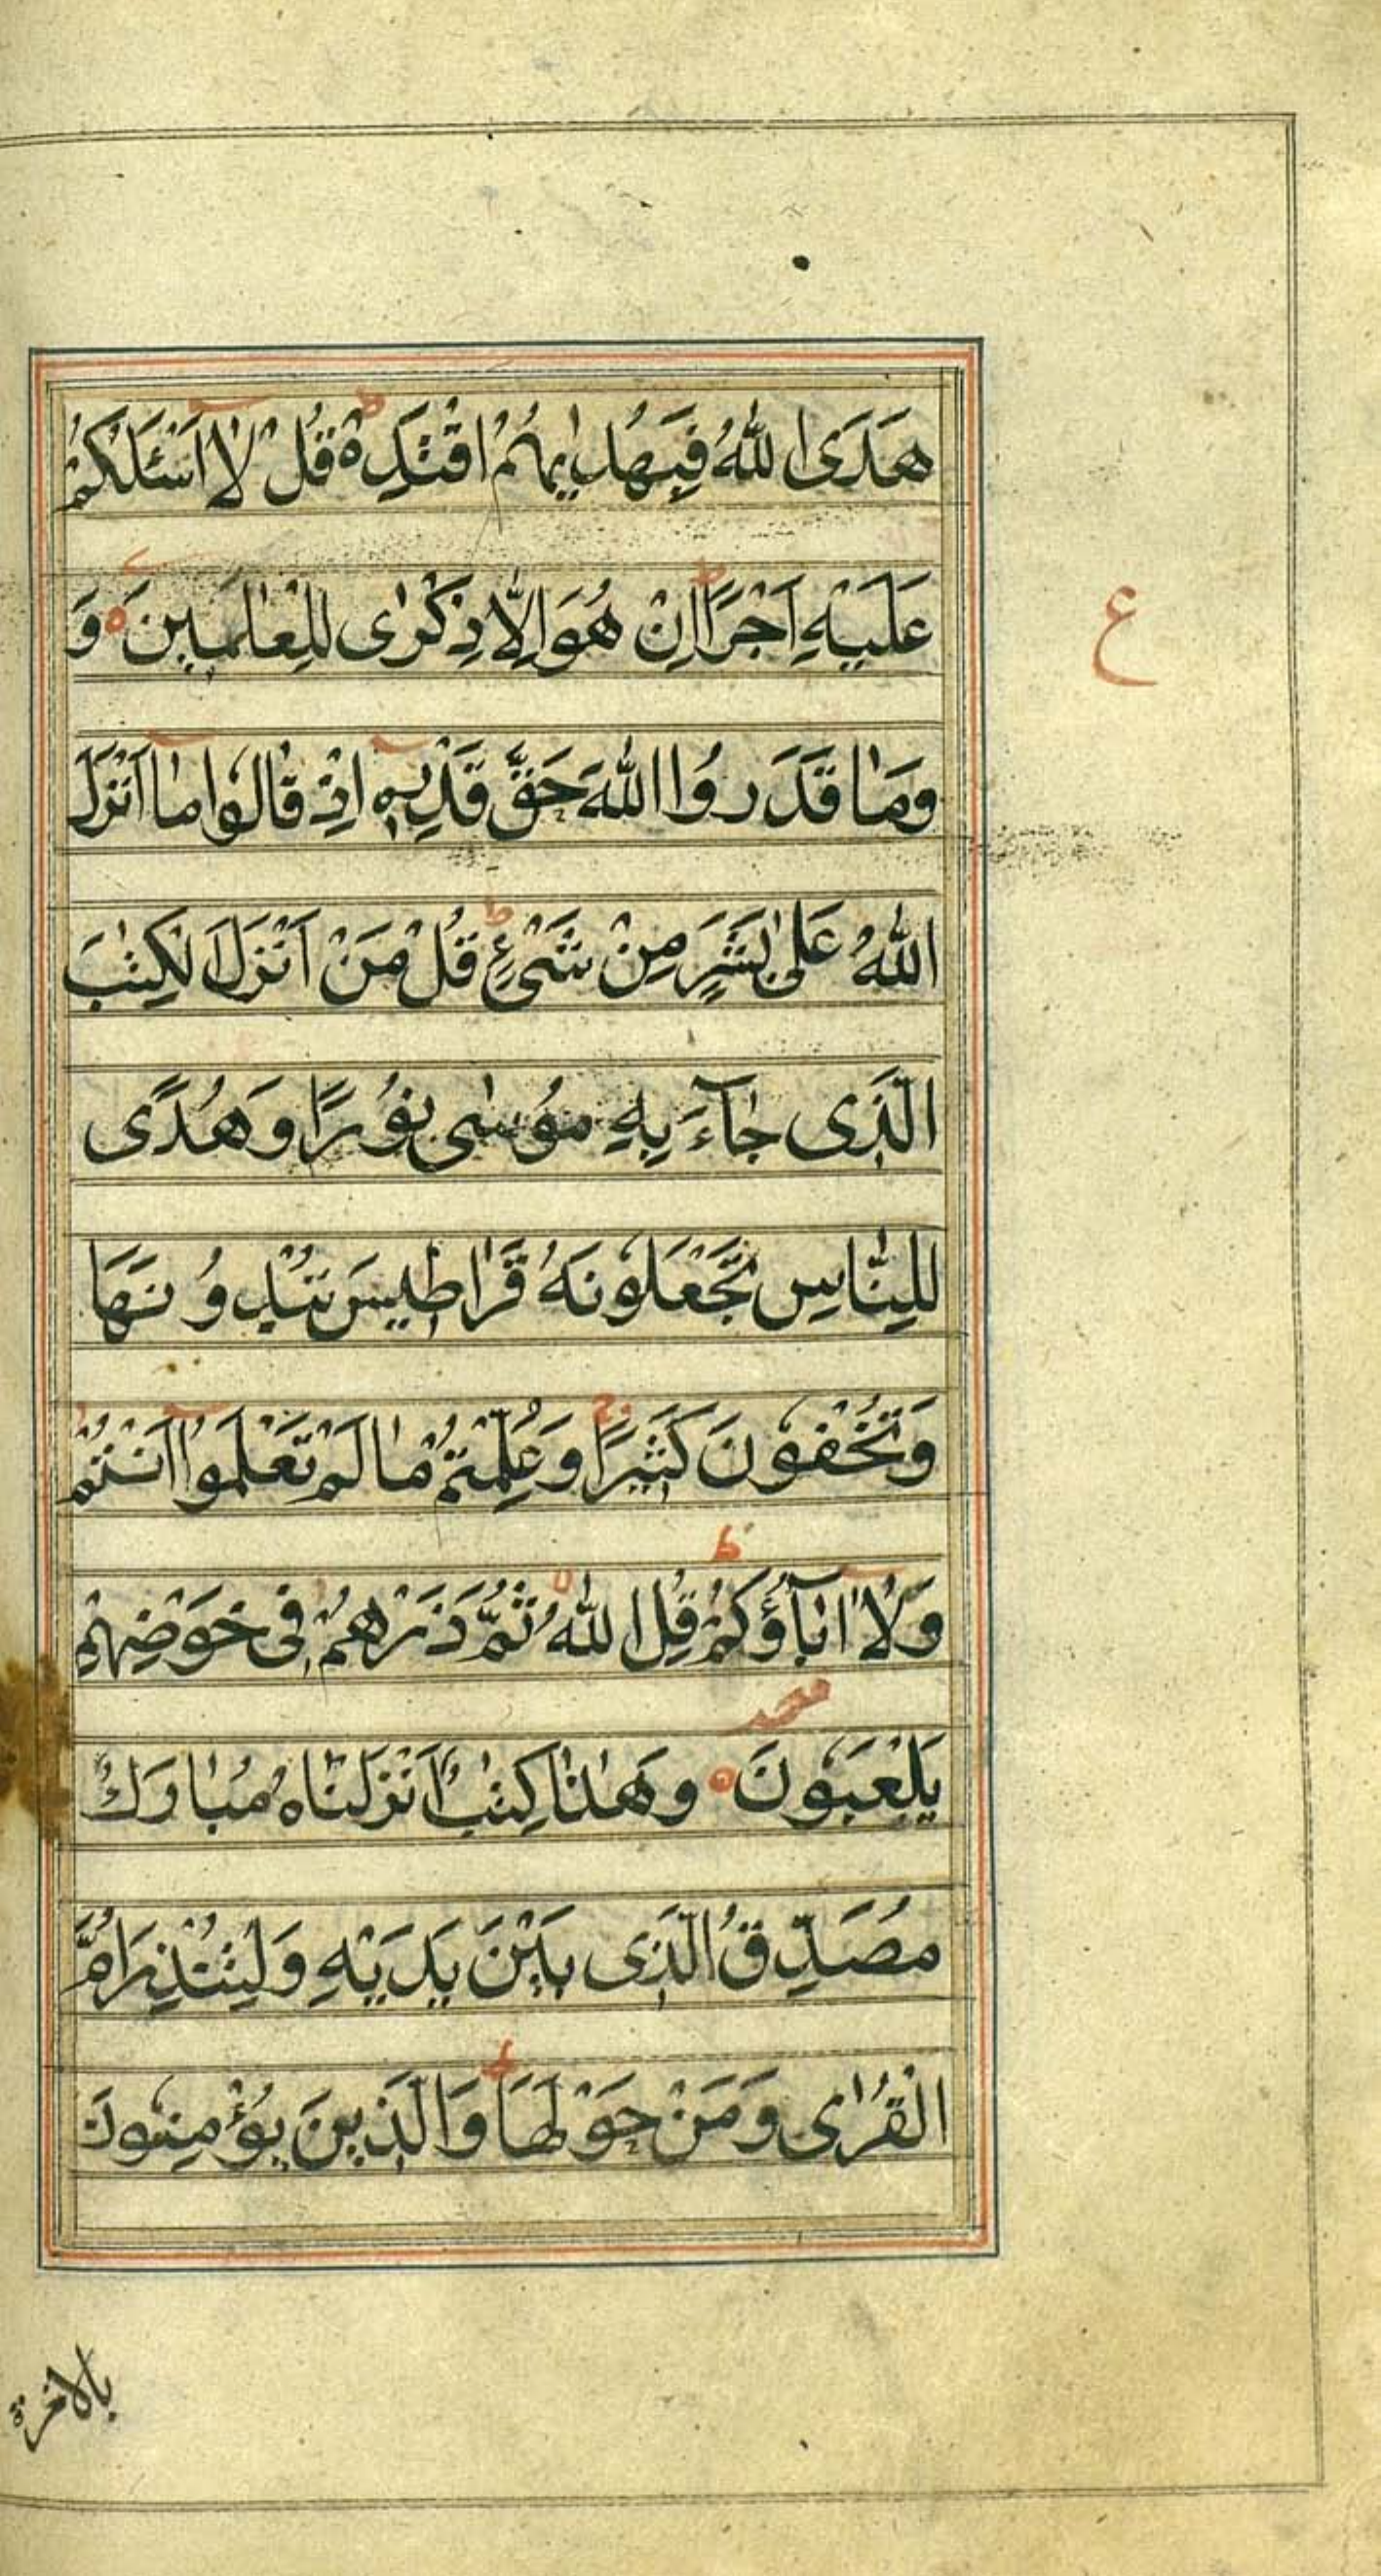 هَدَى اللّٰهُ فَبِهُدٰىهُمُ اقْتَدِهْ ط قُلْ لَا اَسْئَلُكُمْ
عَلَيْهِ اَجْرًا ط اِنْ هُوَ اِلَّا ذِكْرٰى لِلْعٰلَمِينَ وَ
ع
وَمَا قَدَرُوا اللّٰهَ حَقَّ قَدْرِهٖ اِذْ قَالُوا مَا اَنْزَلَ
اللّٰهُ عَلٰى بَشَرٍ مِنْ شَىْءٍ ط قُلْ مَنْ اَنْزَلَ الْكِتٰبَ
الَّذِى جَآءَ بِهِ مُوسٰى نُورًا وَهُدًى
لِلنَّاسِ تَجْعَلُونَهُ قَرَاطِيسَ تُبْدُونَهَا
وَتُخْفُونَ كَثِيرًا ج وَعُلِّمْتُمْ مَا لَمْ تَعْلَمُوا اَنْتُمْ
وَلَا اٰبَآؤُكُمْ ط قُلِ اللّٰهُ ثُمَّ ذَرْهُمْ فِى خَوْضِهِمْ
يَلْعَبُونَ وَهٰذَا كِتٰبٌ اَنْزَلْنَاهُ مُبَارَكٌ
مُصَدِّقُ الَّذِى بَيْنَ يَدَيْهِ وَلِتُنْذِرَ اُمَّ
الْقُرٰى وَمَنْ حَوْلَهَا ط وَالَّذِينَ يُؤْمِنُونَ
بالاخرة